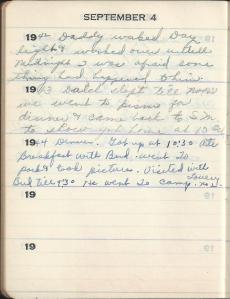 SEPTEMBER 4
1942 Daddy waked Day
light & worked over untill
midnight I was afraid some
thing had happened to him.
1943 slept till noon
we went to for
dinner & came back to S.M.
to show got home at 10
1944 Dinner. Got up at 10:30 Ate
Breakfast with Bud. went to
park & took pictures. Visited with
Bud till 9:30 He went to camp.
19
19